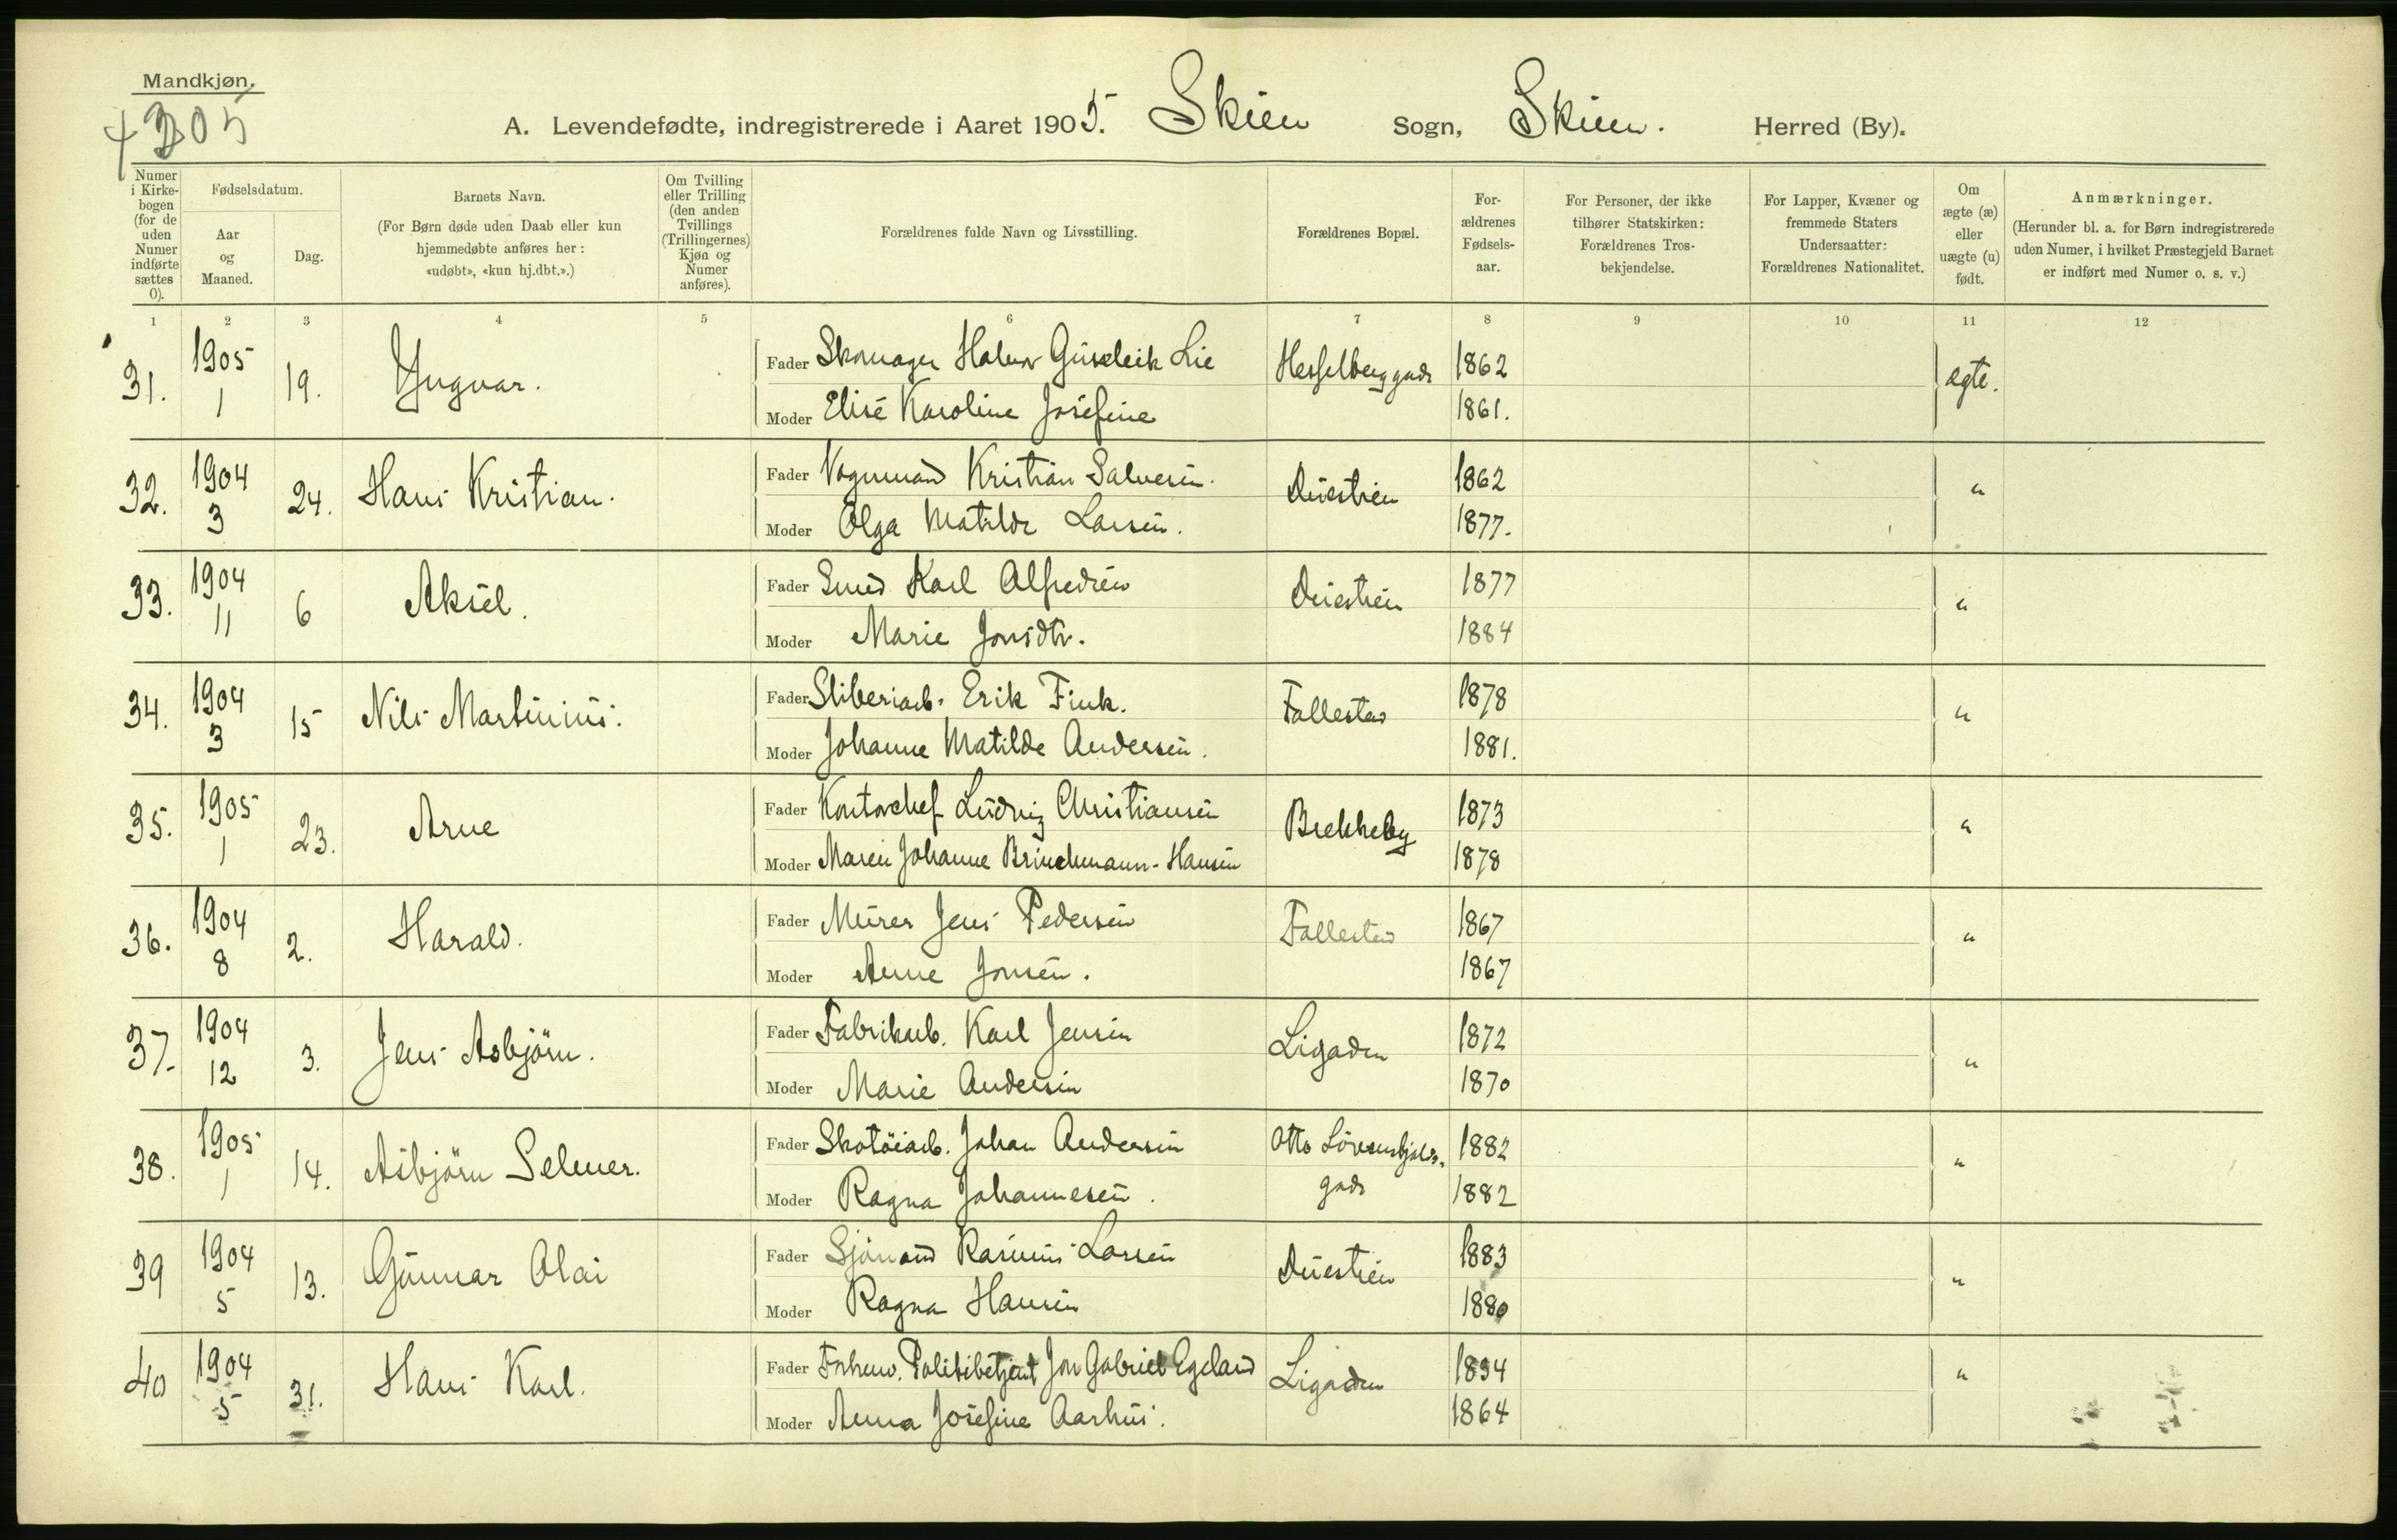 Mandkjøn.
4205
A. Levendefødte, indregistrerede i Aaret 1905. Skien Sogn, Skien. Herred (By).
Numer i Kirkebogen (for de uden Numer indførte sættes 0).
Fødselsdatum.
Aar og Maaned.
Dag.
Barnets Navn.
(For Børn døde uden Daab eller kun hjemmedøbte anføres her: «udøbt», «kun hj.dbt.».)
Om Tvilling eller Trilling (den anden Tvillings (Trillingernes) Kjøn og Numer anføres).
Forældrenes fulde Navn og Livsstilling.
Forældrenes Bopæl.
Forældrenes Fødselsaar.
For Personer, der ikke tilhører Statskirken: Forældrenes Trosbekjendelse.
For Lapper, Kvæner og fremmede Staters Undersaatter: Forældrenes Nationalitet.
Om ægte (æ) eller uægte (u) født.
Anmærkninger.
(Herunder bl. a. for Børn indregistrerede uden Numer, i hvilket Præstegjeld Barnet er indført med Numer o. s. v.)
1 2 3 4 5 6 7 8 9 10 11 12
31. 1905 1 19. Yngvar. Fader Skomager Halvor Gunleik Lie Hesselberggade 1862 ægte.
Moder Elise Karoline Josefine 1861.
32. 1904 3 24. Hans Kristian. Fader Vognmand Kristian Salvesen. Duestien 1862 "
Moder Olga Matilde Larsen. 1877.
33. 1904 11 6 Aksel. Fader Smed Karl Alfredsen Duestien 1877 "
Moder Marie Jonsdtr. 1884
34. 1904 3 15 Nils Martinius. Fader Sliberiarb. Erik Fink. Follestad 1878 "
Moder Johanne Matilde Andersen. 1881.
35. 1905 1 23. Arne Fader Kontorchef Ludvig Christiansen Brekkeby 1873 "
Moder Maren Johanne Brinchmann-Hansen 1878
36. 1904 8 2. Harald. Fader Murer Jens Pedersen Follestad 1867 "
Moder Anne Jonsen. 1867
37. 1904 12 3. Jens Asbjørn. Fader Fabrikarb. Karl Jensen Ligaden 1872 "
Moder Marie Andersen 1870
38. 1905 1 14. Asbjörn Selmer. Fader Skotöiarb. Johan Andersen Otto Lövenskjolds. gade 1882 "
Moder Ragna Johannesen. 1882
39 1904 5 13. Gunnar Olai Fader Sjömand Rasmus Larsen Duestien 1883 "
Moder Ragna Hansen 1880
40 1904 5 31. Hans Karl. Fader Forhenv. Politibetjent Jon Gabriel Egeland Ligaden 1834 "
Moder Anna Josefine Aarhus. 1864